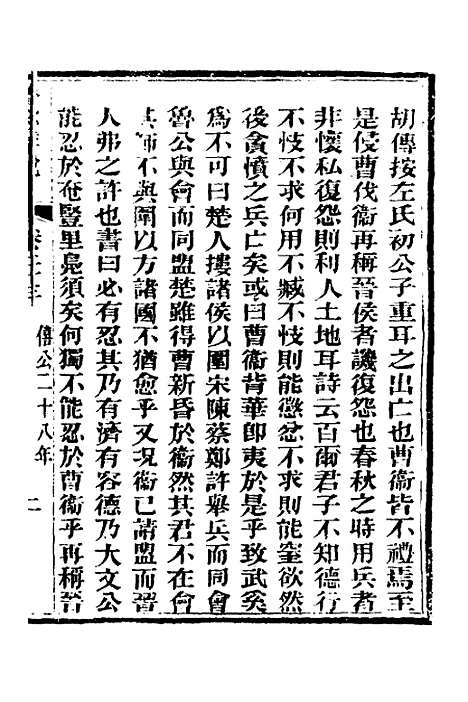 胡傳按左氏初公子重耳之出亡也曹衞皆不禮焉至
是侵曹伐衞再稱晉侯者譏復怨也春秋之時用兵者
非懷私復怨則利人土地耳詩云百爾君子不知德行
不忮不求何用不臧不忮則能懲忿不求則能窒欲然
後貪憤之兵亡矣或曰曹衞背華卽夷於是乎致武奚
爲不可曰楚人摟諸侯以圍宋陳蔡鄭許舉兵而同會
魯公與會而同盟楚雖得曹新昏於衞然其君不在會
其師不與圍以方諸國不猶愈乎又況衞已請盟而晉
人弗之許也書曰必有忍其乃有濟有容德乃大文公
能忍於奄豎里鳧須矣何獨不能忍於曹衞乎再稱晉
僖公二十八年 二